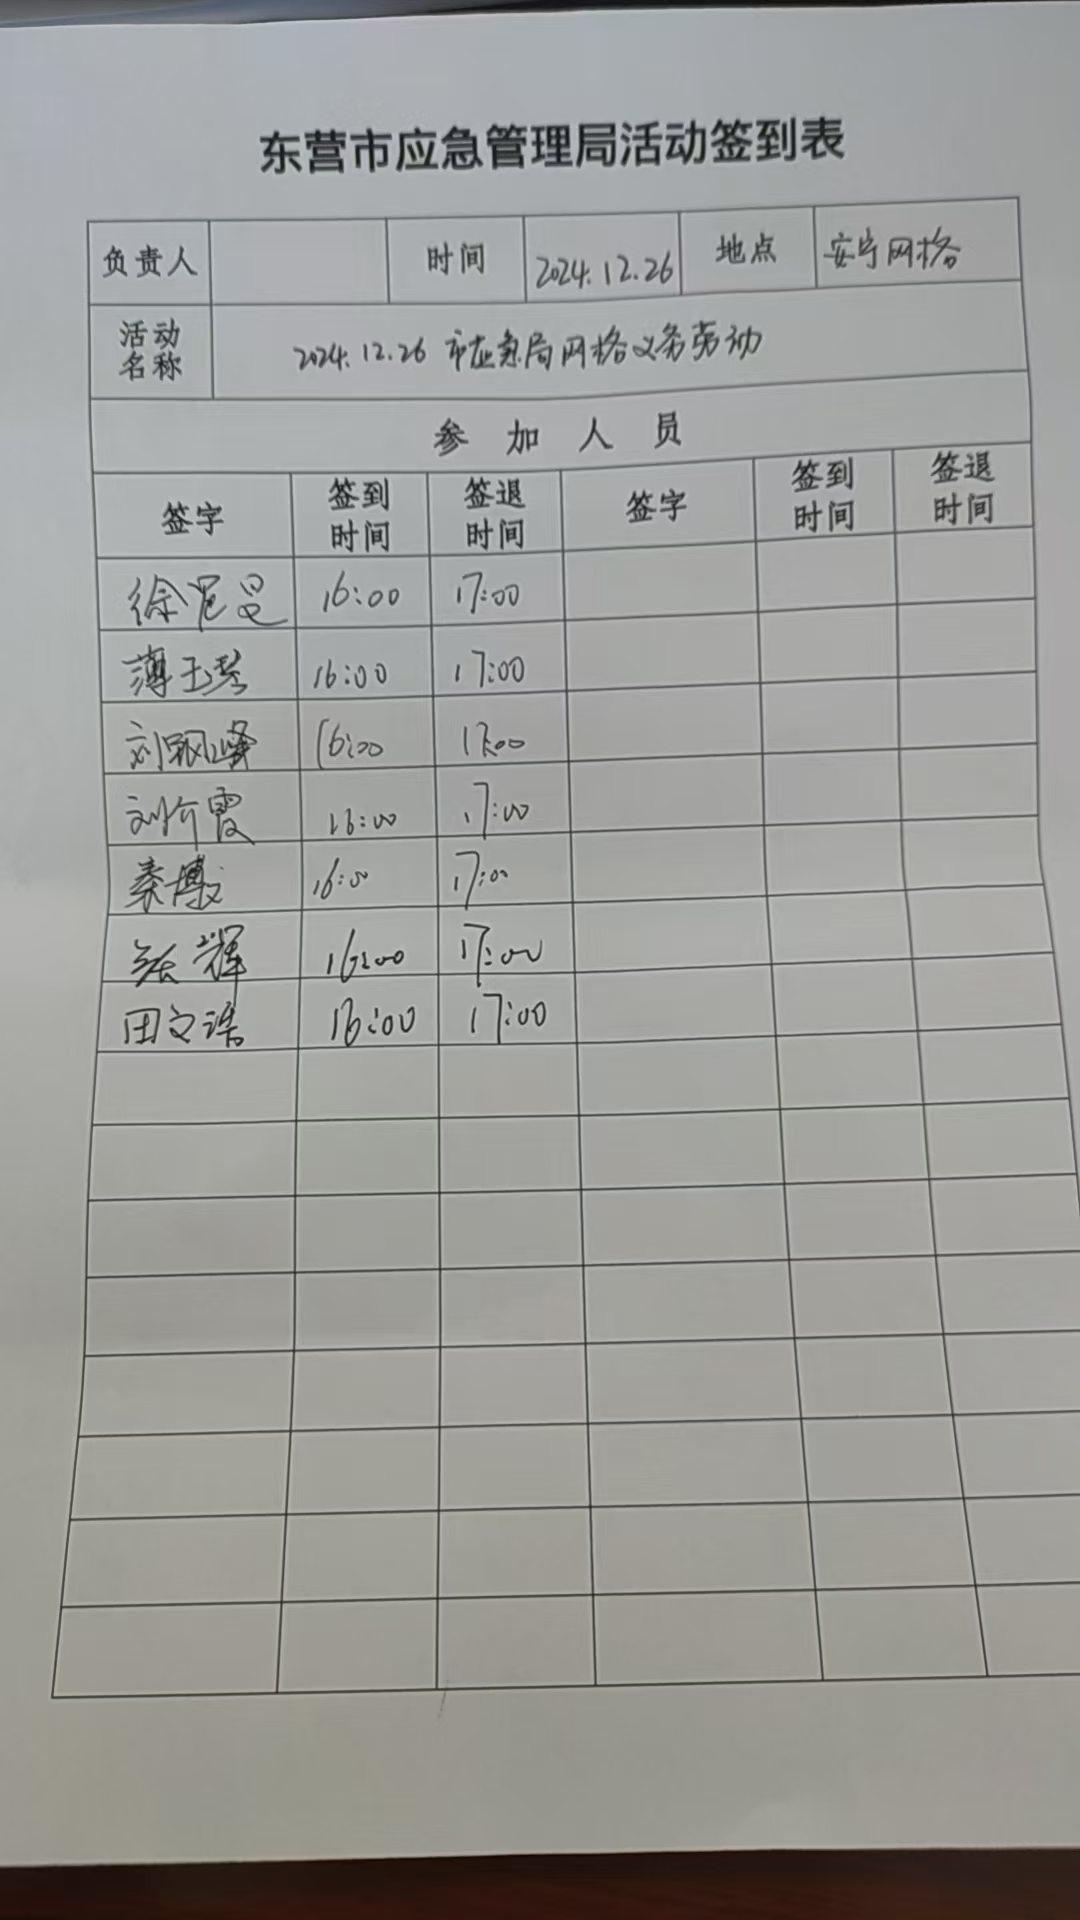 东营市应急管理局活动签到表
负责人 时间 2024.12.26 地点 安宁网格
活动名称 2024.12.26 市应急局网格义务劳动
参加人员
签字 签到时间 签退时间 签字 签到时间 签退时间
徐 16:00 17:00
薄玉琴 16:00 17:00
刘 峰 16:00 17:00
刘介霞 16:00 17:00
秦博文 16:00 17:00
辉 16:00 17:00
田文浩 16:00 17:00